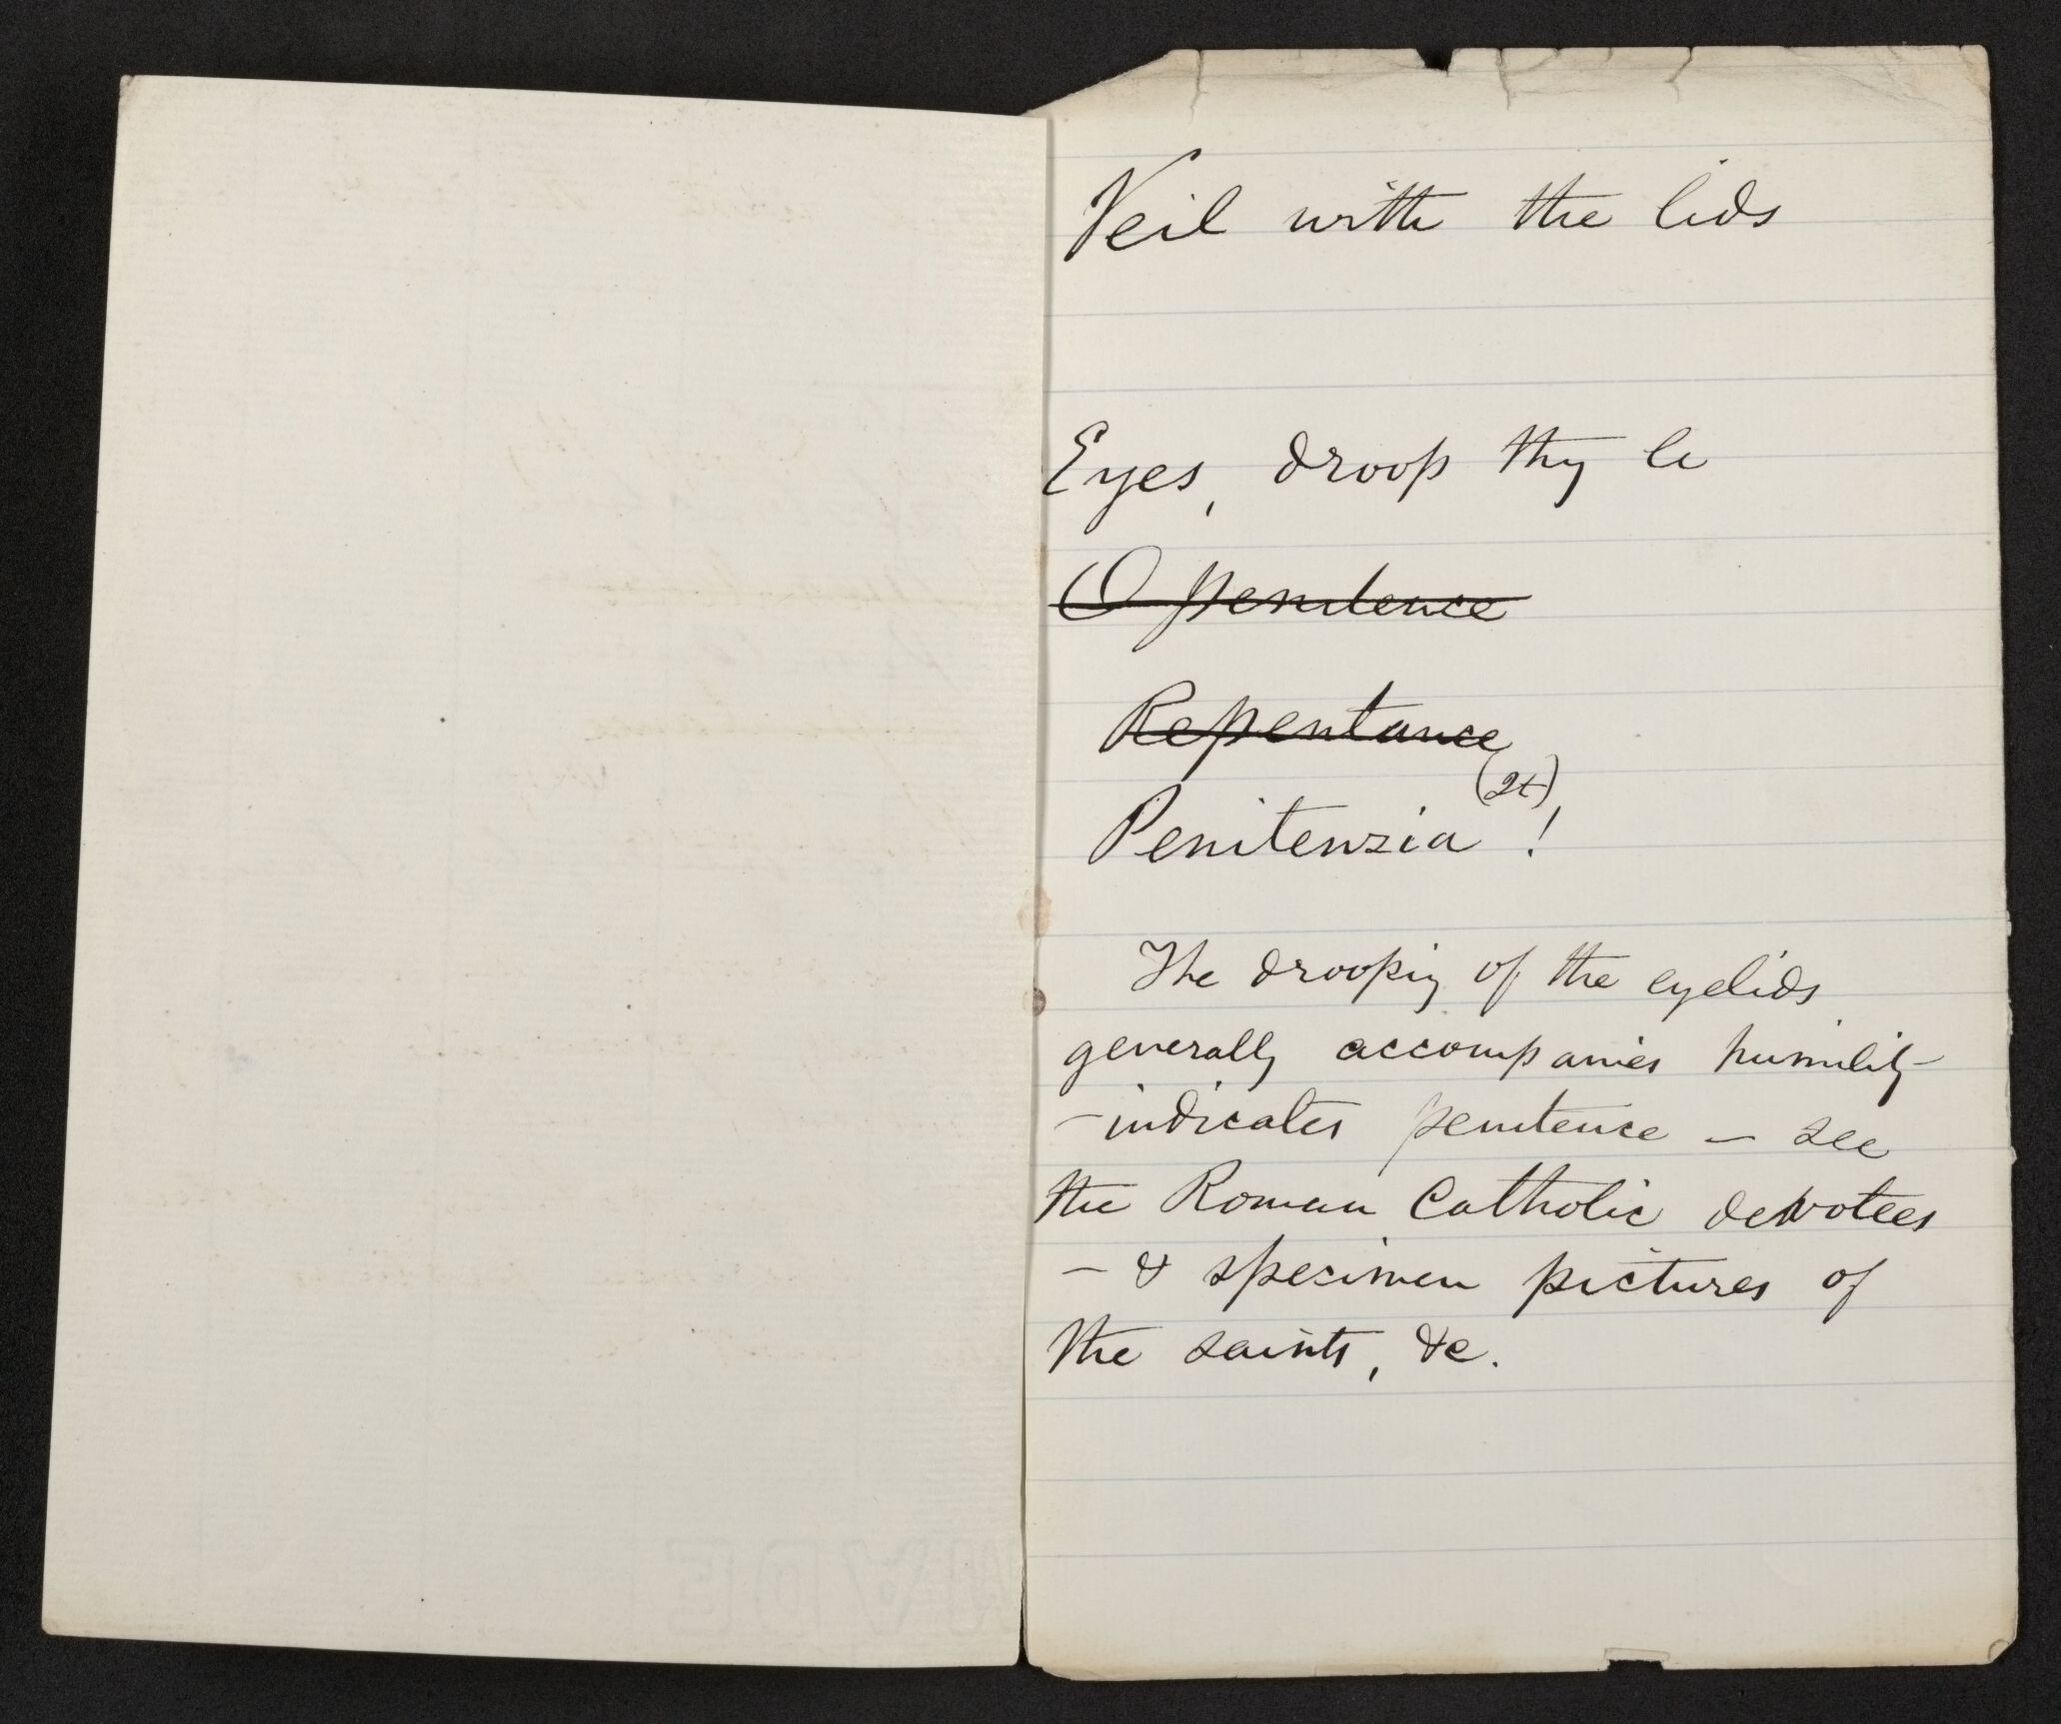 Veil with the lids
Eyes, droop thy li
O penitence
Repentance
(2t)
Penitenzia !
The drooping of the eyelids
generally accompanies humility
– indicates penitence – see
the Roman Catholic devotees
– & specimen pictures of
the saints, &c.